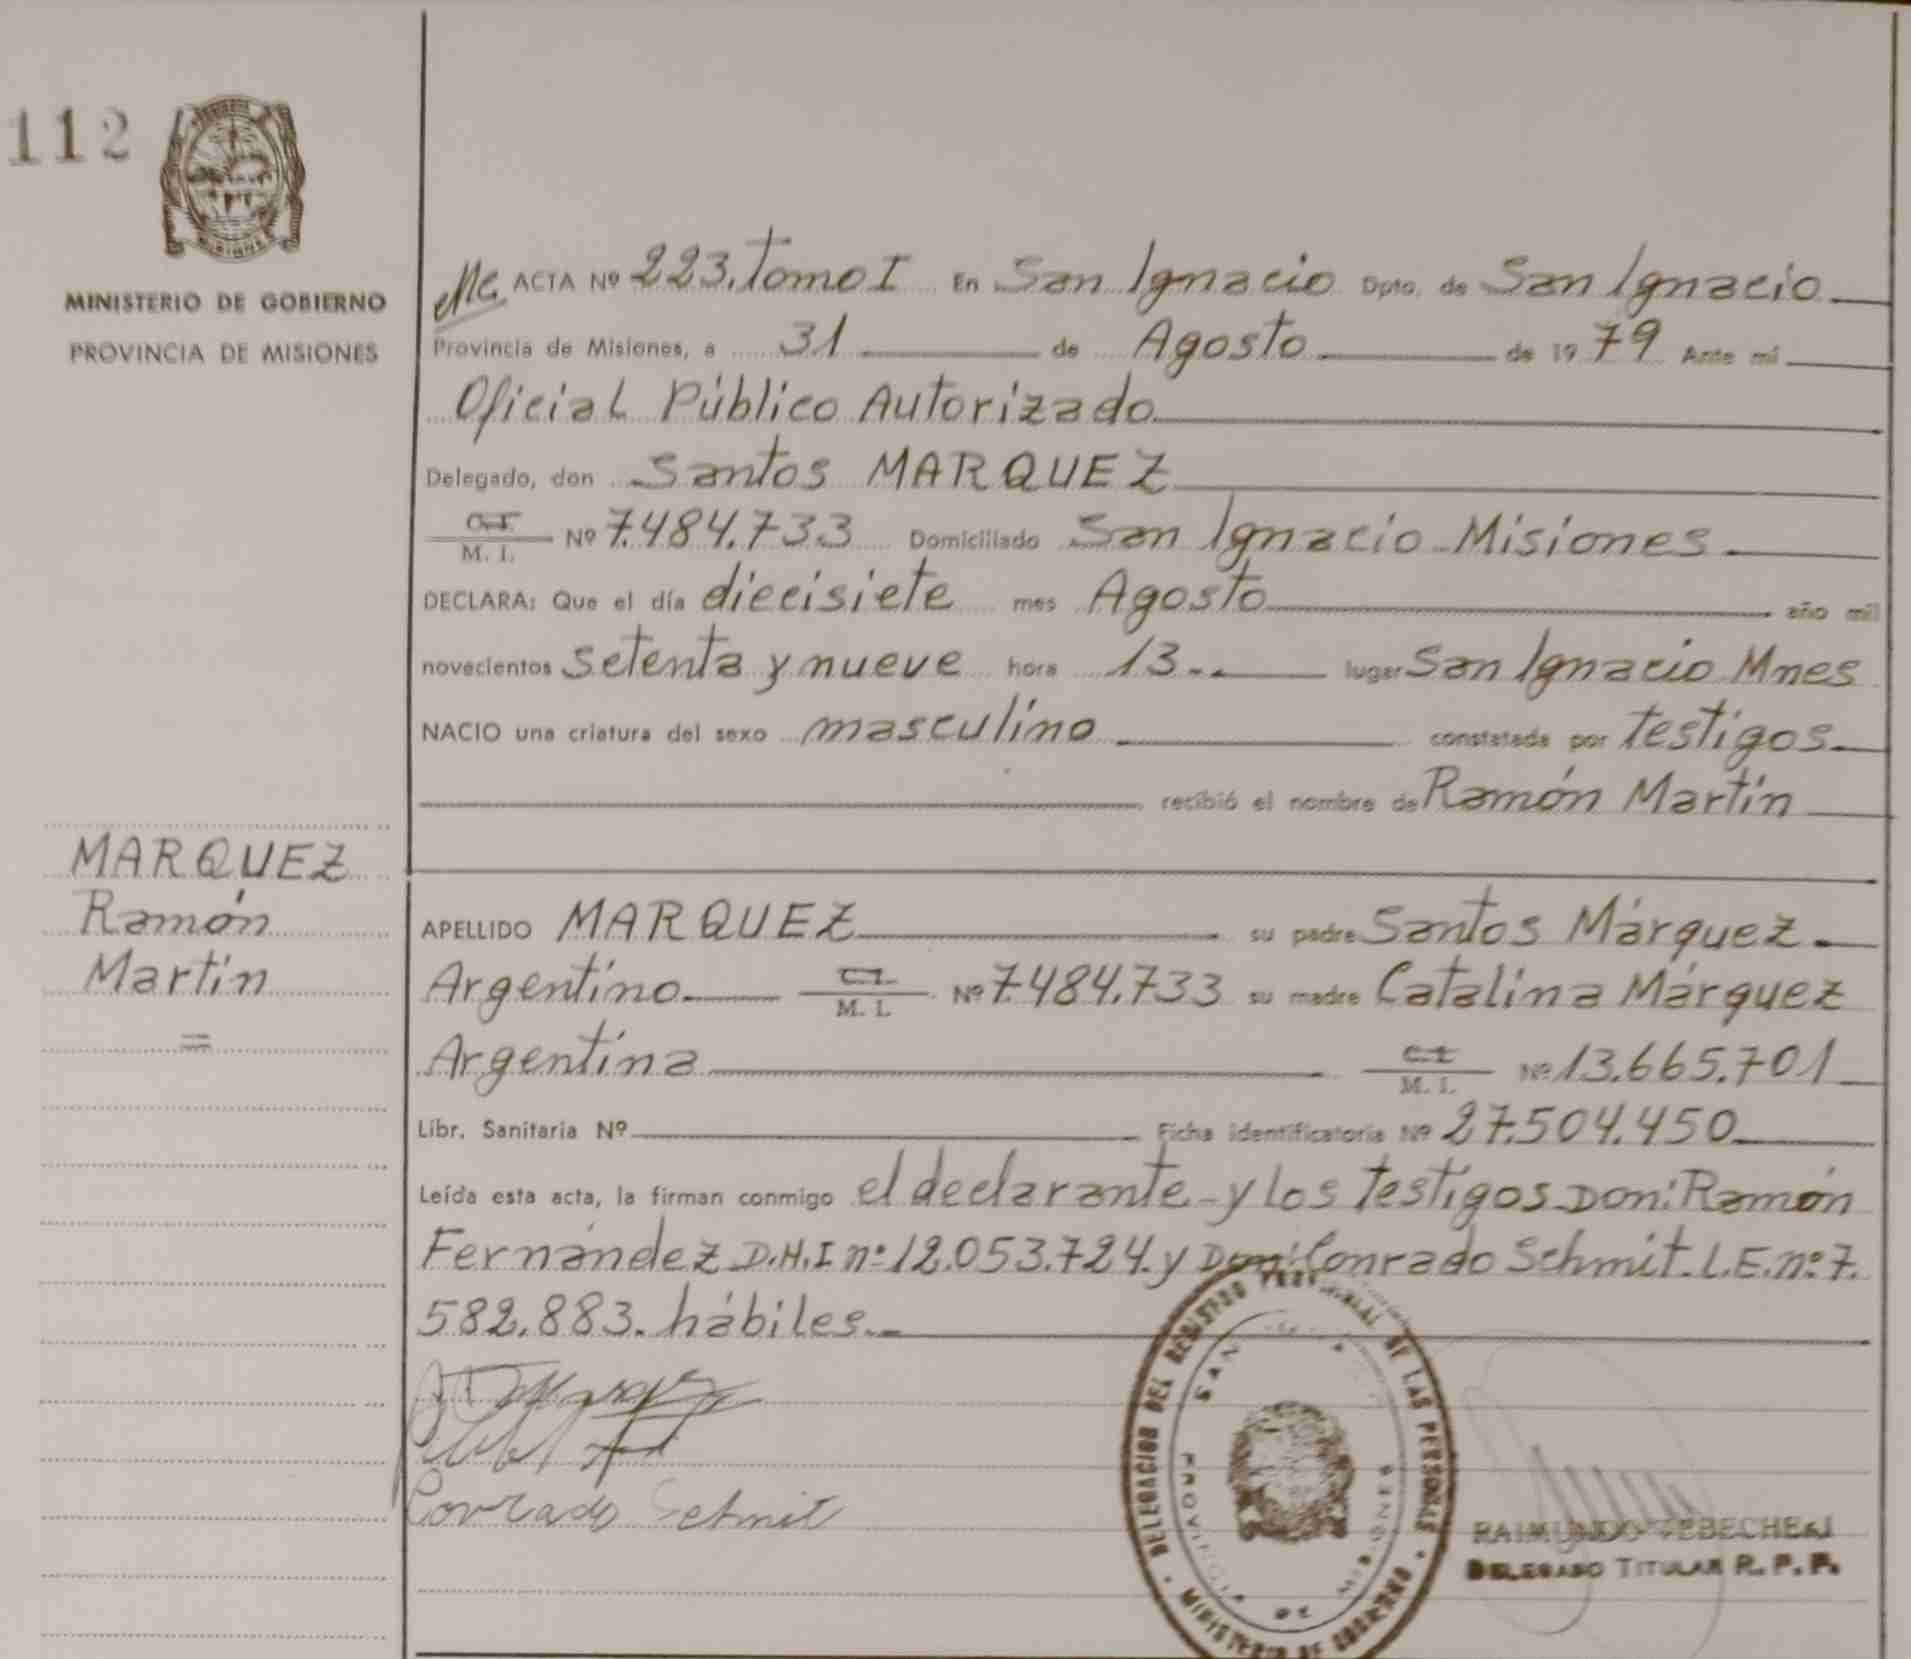 112
MINISTERIO DE GOBIERNO
PROVINCIA DE MISIONES
ACTA Nº 223. Tomo I En San Ignacio Dpto. de San Ignacio
Provincia de Misiones, a 31 de Agosto de 1979 Ante mí
Oficial Público Autorizado
Delegado, don Santos MARQUEZ
C.I.
M. I. Nº 7.484.733 Domiciliado San Ignacio Misiones
DECLARA: Que el día diecisiete mes Agosto año mil
novecientos setenta y nueve hora 13.. lugar San Ignacio Mnes
NACIO una criatura del sexo masculino constatada por testigos.
recibió el nombre de Ramón Martín
MARQUEZ
Ramón
Martín
=
APELLIDO MARQUEZ su padre Santos Márquez
Argentino C.I.
M. I. Nº 7.484.733 su madre Catalina Márquez
Argentina C.I.
M. I. Nº 13.665.701
Libr. Sanitaria Nº Ficha identificatoria Nº 27.504.450
Leída esta acta, la firman conmigo el declarante y los testigos Don: Ramón
Fernández D.N.I nº 12.053.724. y Don: Conrado Schmit. L.E. nº 7.
582.883. hábiles.
Conrado Schmit
DELEGACION DEL REGISTRO PROVINCIAL DE LAS PERSONAS
MINISTERIO DE GOBIERNO
SAN
PROVINCIA DE MISIONES
RAIMUNDO
DELEGADO TITULAR R. P. P.